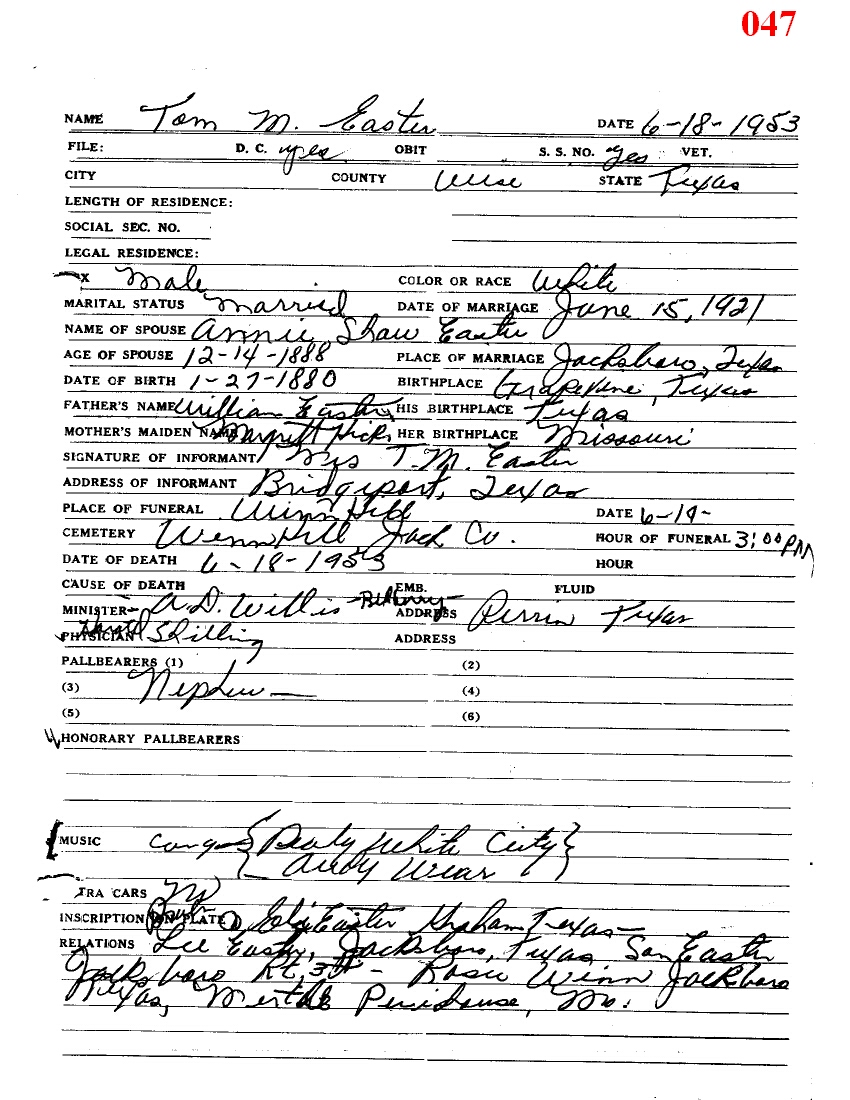 047
NAME Tom M. Easter DATE 6-18-1953
FILE: D. C. yes OBIT S. S. NO. yes VET.
CITY COUNTY Wise STATE Texas
LENGTH OF RESIDENCE:
SOCIAL SEC. NO.
LEGAL RESIDENCE:
X Male COLOR OR RACE White
MARITAL STATUS Married DATE OF MARRIAGE June 15, 1921
NAME OF SPOUSE Annie Shaw Easter
AGE OF SPOUSE 12-14-1888 PLACE OF MARRIAGE Jacksboro, Texas
DATE OF BIRTH 1-27-1880 BIRTHPLACE Grapevine, Texas
FATHER'S NAME William Easter HIS BIRTHPLACE Texas
MOTHER'S MAIDEN NAME Margrett Hicks HER BIRTHPLACE Missouri
SIGNATURE OF INFORMANT Mrs T. M. Easter
ADDRESS OF INFORMANT Bridgeport, Texas
PLACE OF FUNERAL Winn Hill DATE 6-19-
CEMETERY Wenn Hill Jack Co. HOUR OF FUNERAL 3:00 PM
DATE OF DEATH 6-18-1953 HOUR
CAUSE OF DEATH EMB. FLUID
MINISTER- A. D. Willis ADDRESS Perrin Texas
PHYSICIAN Shilling ADDRESS
PALLBEARERS (1) (2)
(3) Nephew (4)
(5) (6)
HONORARY PALLBEARERS
MUSIC Cong { Beauty White City }
Andy Wear
TRA CARS No
INSCRIPTION ON PLATE Easter Graham Texas
RELATIONS Lee Easter, Jacksboro, Texas, Sam Easter
Jacksboro Rt. 3 - Rosie Winn Jacksboro
Texas, Mo.